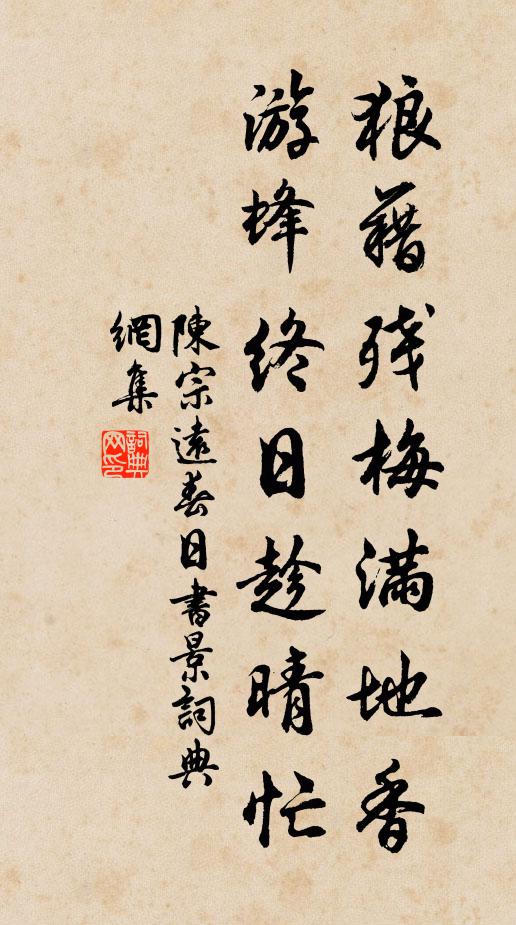 狼藉残梅満地香
游蜂终日趁晴忙
陳宗遠春日書景詞典
網集
詞典网印